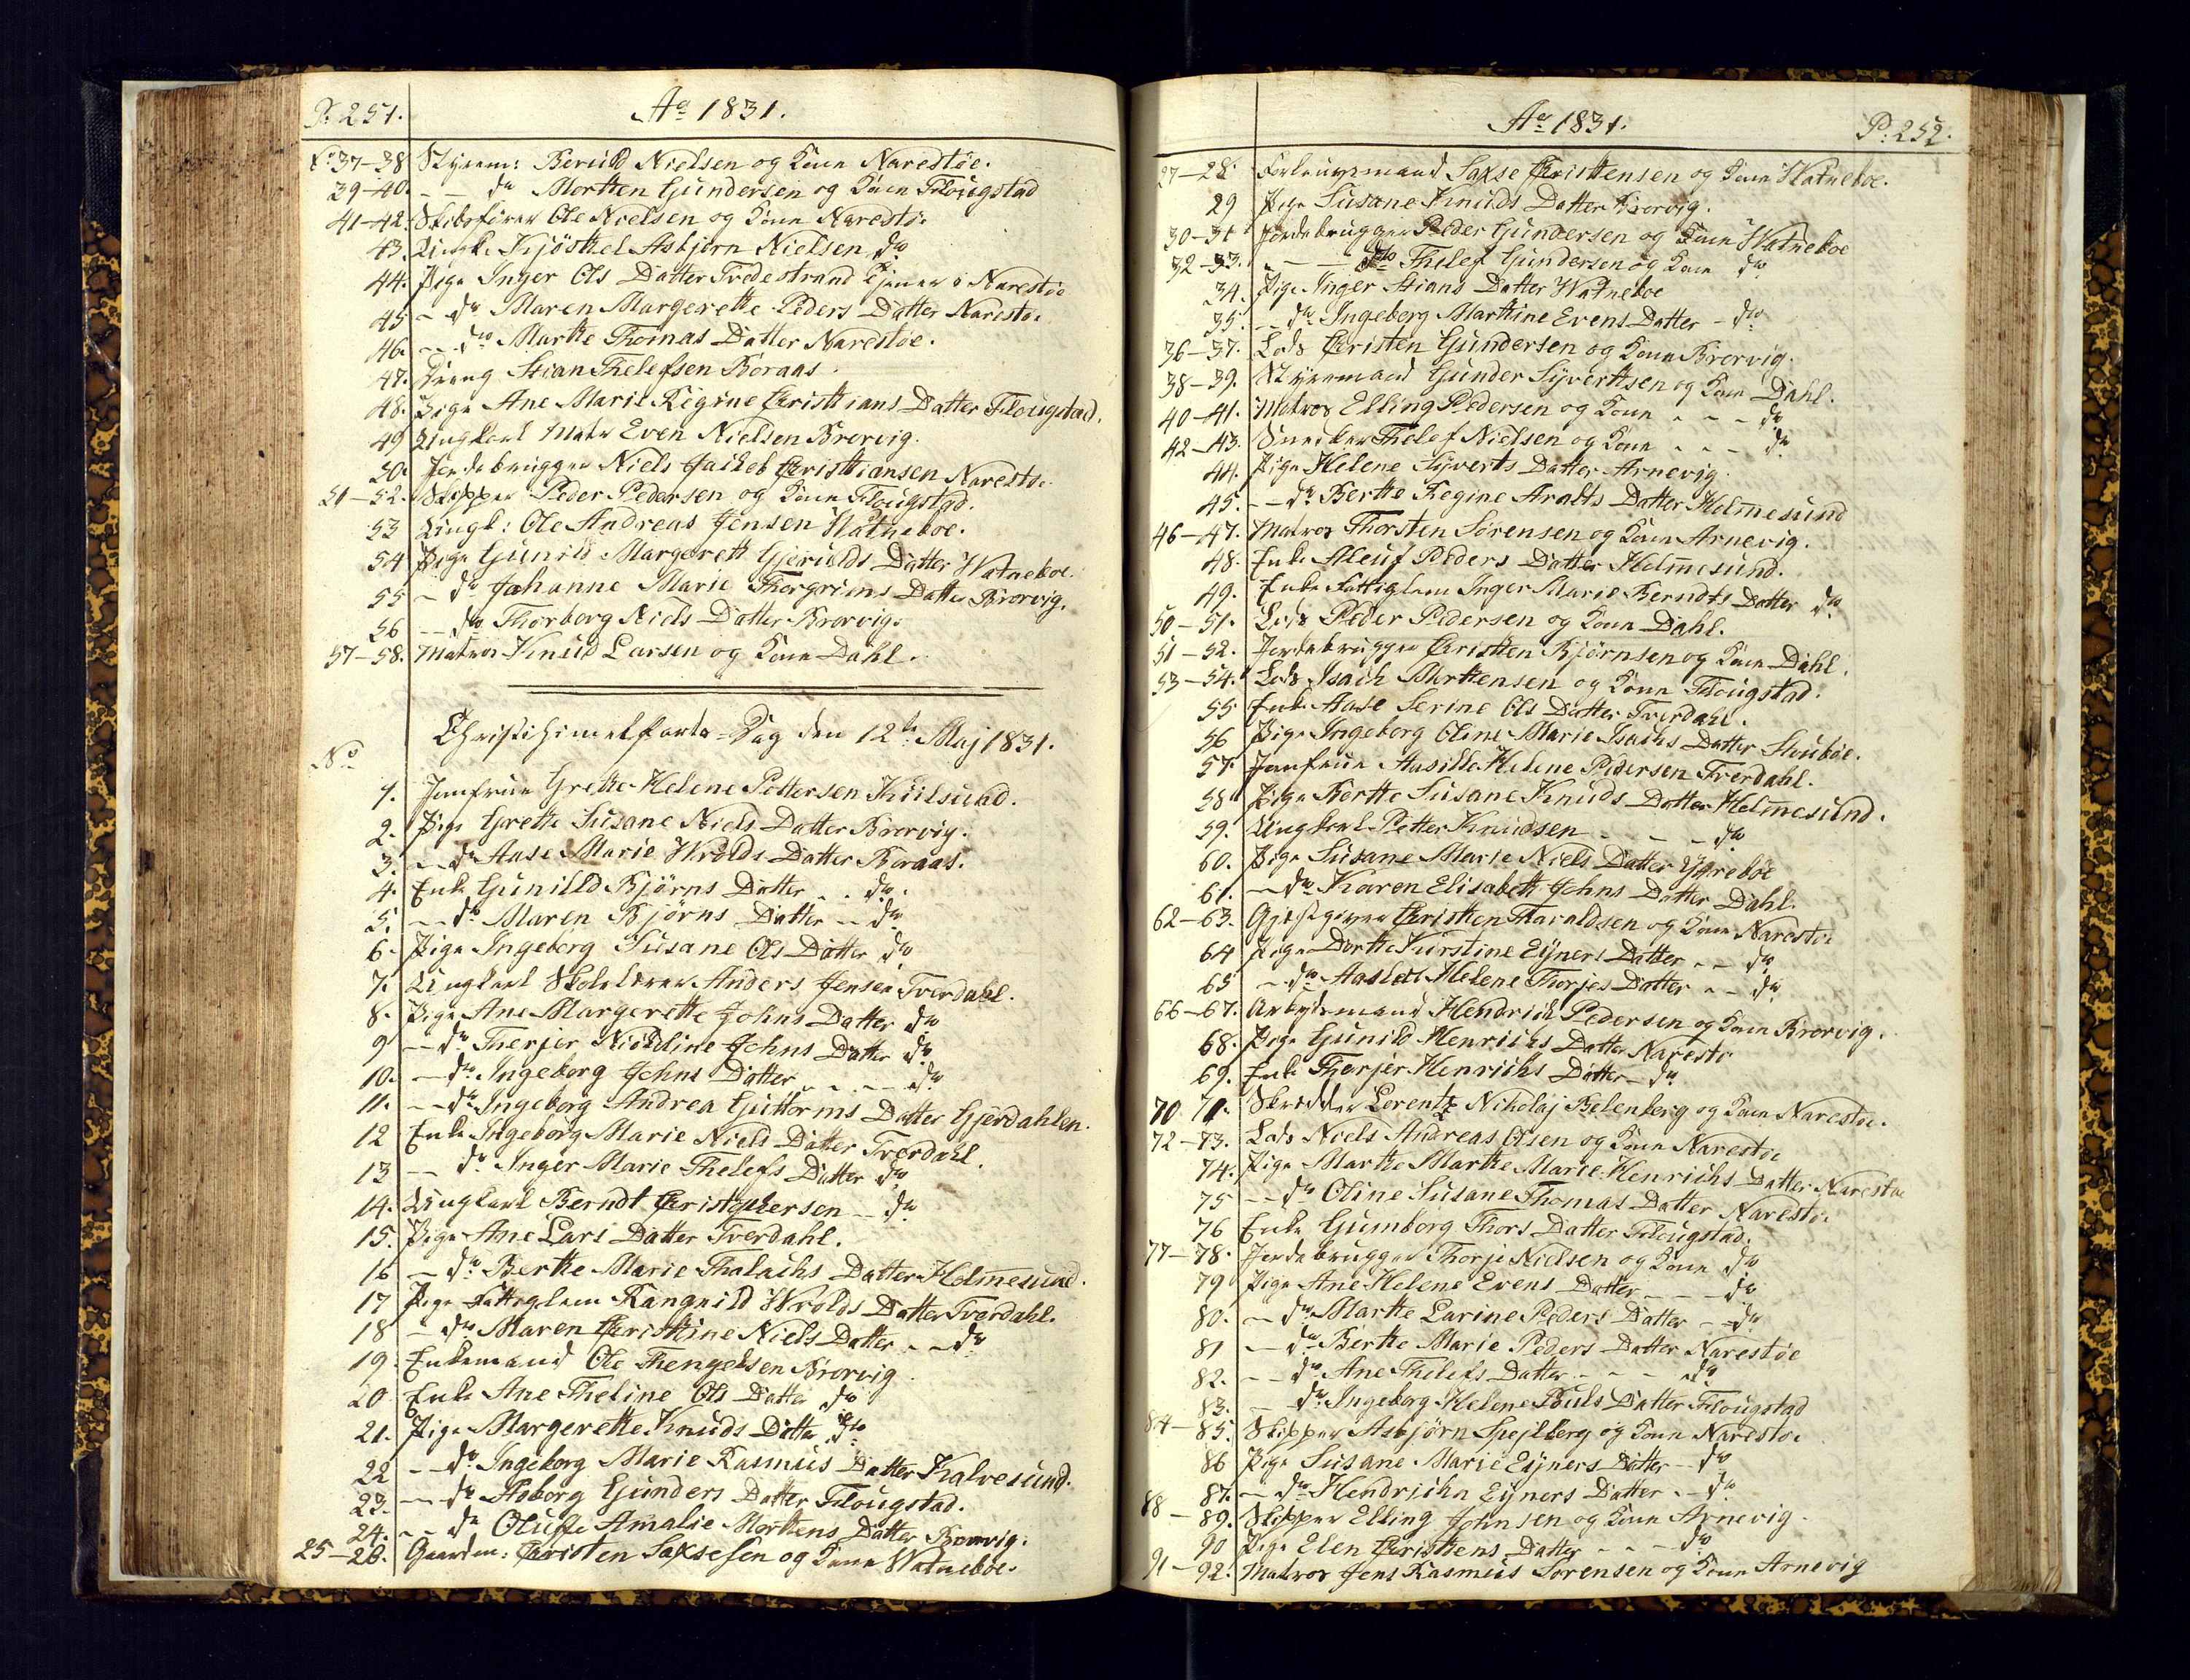 P. 251.
Ao 1831.
No 37-38 Styrem: Beruld Nielsen og Kone Narestøe.
39-40. - - do Mortten Gundersen og Kone Flougstad
41-42. Skibsfører Ole Nielsen og Kone Narestøe
43. Ungk. Kjöstkel Asbjørn Nielsen do
44. Pige Inger Ols Datter Tvedestrand tjener i Narestøe
45 - do Maren Margerette Peders Datter Narestøe
46. - - do Marthe Thomas Datter Narestøe.
47. Dreng Stian Thelefsen Boraas.
48. Pige Ane Marie Regine Christians Datter Flougstad.
49 Ungkarl Matr Even Nielsen Brorvig.
50. Jordebrugger Niels Jackob Christiansen Narestøe
51-52. Skipper Peder Pedersen og Kone Flougstad.
53 Ungk: Ole Andreas Jensen Watneboe.
54 Pige Gunild Margerett Gjerulds Datter Watneboe.
55 - do Johanne Marie Thorgrims Datter Brorvig.
56 - - do Thorborg Niels Datter Brorvig.
57-58. Matros Knud Larsen og Kone Dahl.
Christi himmelfarts-Dag den 12te Maj 1831.
No
1. Jomfrue Grethe Helene Pettersen Kiilsund.
2. Pige Grethe Susane Niels Datter Brorvig.
3. - - do Aase Marie Wrolds Datter Boraas.
4. Enke Gunilld Bjørns Datter - - do.
5. - - do Maren Bjørns Datter - - do
6. Pige Ingeborg Susane Ols Datter do
7. Ungkarl Skolelærer Anders Jensen Tverdahl.
8. Pige Ane Margerette Johns Datter do
9 - - do Therjer Nicoline Johns Datter do
10. - - do Ingeborg Johns Datter - - - - do
11. - - do Ingeborg Andrea Guttorms Datter Gjerdahlen.
12 Enke Ingeborg Marie Niels Datter Tverdahl.
13 - - do Inger Marie Thelefs Datter do
14. Ungkarl Berndt Christophersen - - do
15. Pige Ane Lars Datter Tverdahl.
16 - do Berthe Marie Thalachs Datter Holmesund.
17 Pige Fattiglem Rangnild Wrolds Datter Tverdahl.
18 - do Maren Christine Niels Datter - - do
19. Enkemand Ole Thengelsen Brorvig
20 Enke Ane Theline Ols Datter do
21. Pige Margerette Knuds Datter do
22 - - do Ingeborg Marie Rasmus Datter Kalvesund.
23. - - do Asborg Gunders Datter Flougstad.
24. - - do Oluffe Amalie Morttens Datter Brorvig.
25-26. Gaardm: Christen Saxsesen og Kone Watneboe.
Ao 1831.
P. 252.
27-28. Forlougsmand Saxse Christtensen og Kone Watneboe.
29 Pige Susane Knuds Datter Brorvig.
30-31 Jordebrugger Peder Gundersen og Kone Watneboe
32-33. - - - do Thelef Gundersen og Kone do
34. Pige Inger Stians Datter Watneboe
35. - - do Ingeberg Marthine Evens Datter - do
36-37. Lods Christen Gundersen og Kone Brorvig.
38-39. Styremand Gunder Syvertsen og Kone Dahl.
40-41. Matros Elling Pedersen og Kone - - - do
42-43. Snecker Thelef Nielsen og Kone - - - do
44. Pige Helene Syverts Datter Arnevig.
45. - - do Berthe Regine Aralts Datter Holmesund
46-47. Matros Thorsten Sørensen og Kone Arnevig.
48. Enke Aleuf Peders Datter Holmesund.
49. Enke Fattiglem Inger Marie Berndts Datter do
50-51. Lods Peder Pedersen og Kone Dahl.
51-52. Jordebrugger Christen Bjørnsen og Kone Dahl.
53-54. Lods Isach Morttensen og Kone Flougstad.
55 Enke Aase Serine Ols Datter Tverdahl.
56 Pige Ingeborg Oline Marie Isachs Datter Skoubøe.
57. Jomfrue Aasille Helene Pedersen Tverdahl.
58 Pige Berthe Susane Knuds Datter Holmesund.
59. Ungkarl Petter Knudsen - - - do
60. Pige Susane Marie Niels Datter Ytreboe
61. - do Karen Elisabeth Johns Datter Dahl.
62-63. Gjestgiver Christen Haraldsen og Kone Narestøe
64 Pige Dorthe Kirstine Ejners Datter - - do
65 - do Aasled Helene Thorjes Datter - - do
66-67. Arbejdsmand Hendrick Pedersen og Kone Brorvig.
68. Pige Gunild Henrichs Datter Narestøe
69. Enke Therjer Henrichs Datter - do
70 71. Skredder Lorentz Nikolaj Belenberg og Kone Narestøe.
72-73. Lods Niels Andreas Olsen og Kone Narestøe
74. Pige Marthe Marthe Marie Henrichs Datter Narestøe
75 - - do Oline Susane Thomas Datter Narestøe
76 Enke Gumborg Thors Datter Flougstad.
77-78. Jordebrugger Thorje Nielsen og Kone do
79 Pige Ane Helene Evens Datter - - - do
80. - - do Marthe Larine Peders Datter - - do
81 - - do Berthe Marie Peders Datter Narestøe
82. - - do Ane Thelefs Datter - - - do
83. - do Ingeborg Helene Pouls Datter Flougstad
84-85. Skipper Asbjørn Spejlberg og Kone Narestøe
86 Pige Susane Marie Ejners Datter - do
87. - - do Hendricka Ejners Datter - - do
88-89. Skipper Elling Johnsen og Kone Arnevig.
90 Pige Elen Christens Datter - - - do
91-92. Matros Jens Rasmus Sørensen og Kone Arnevig